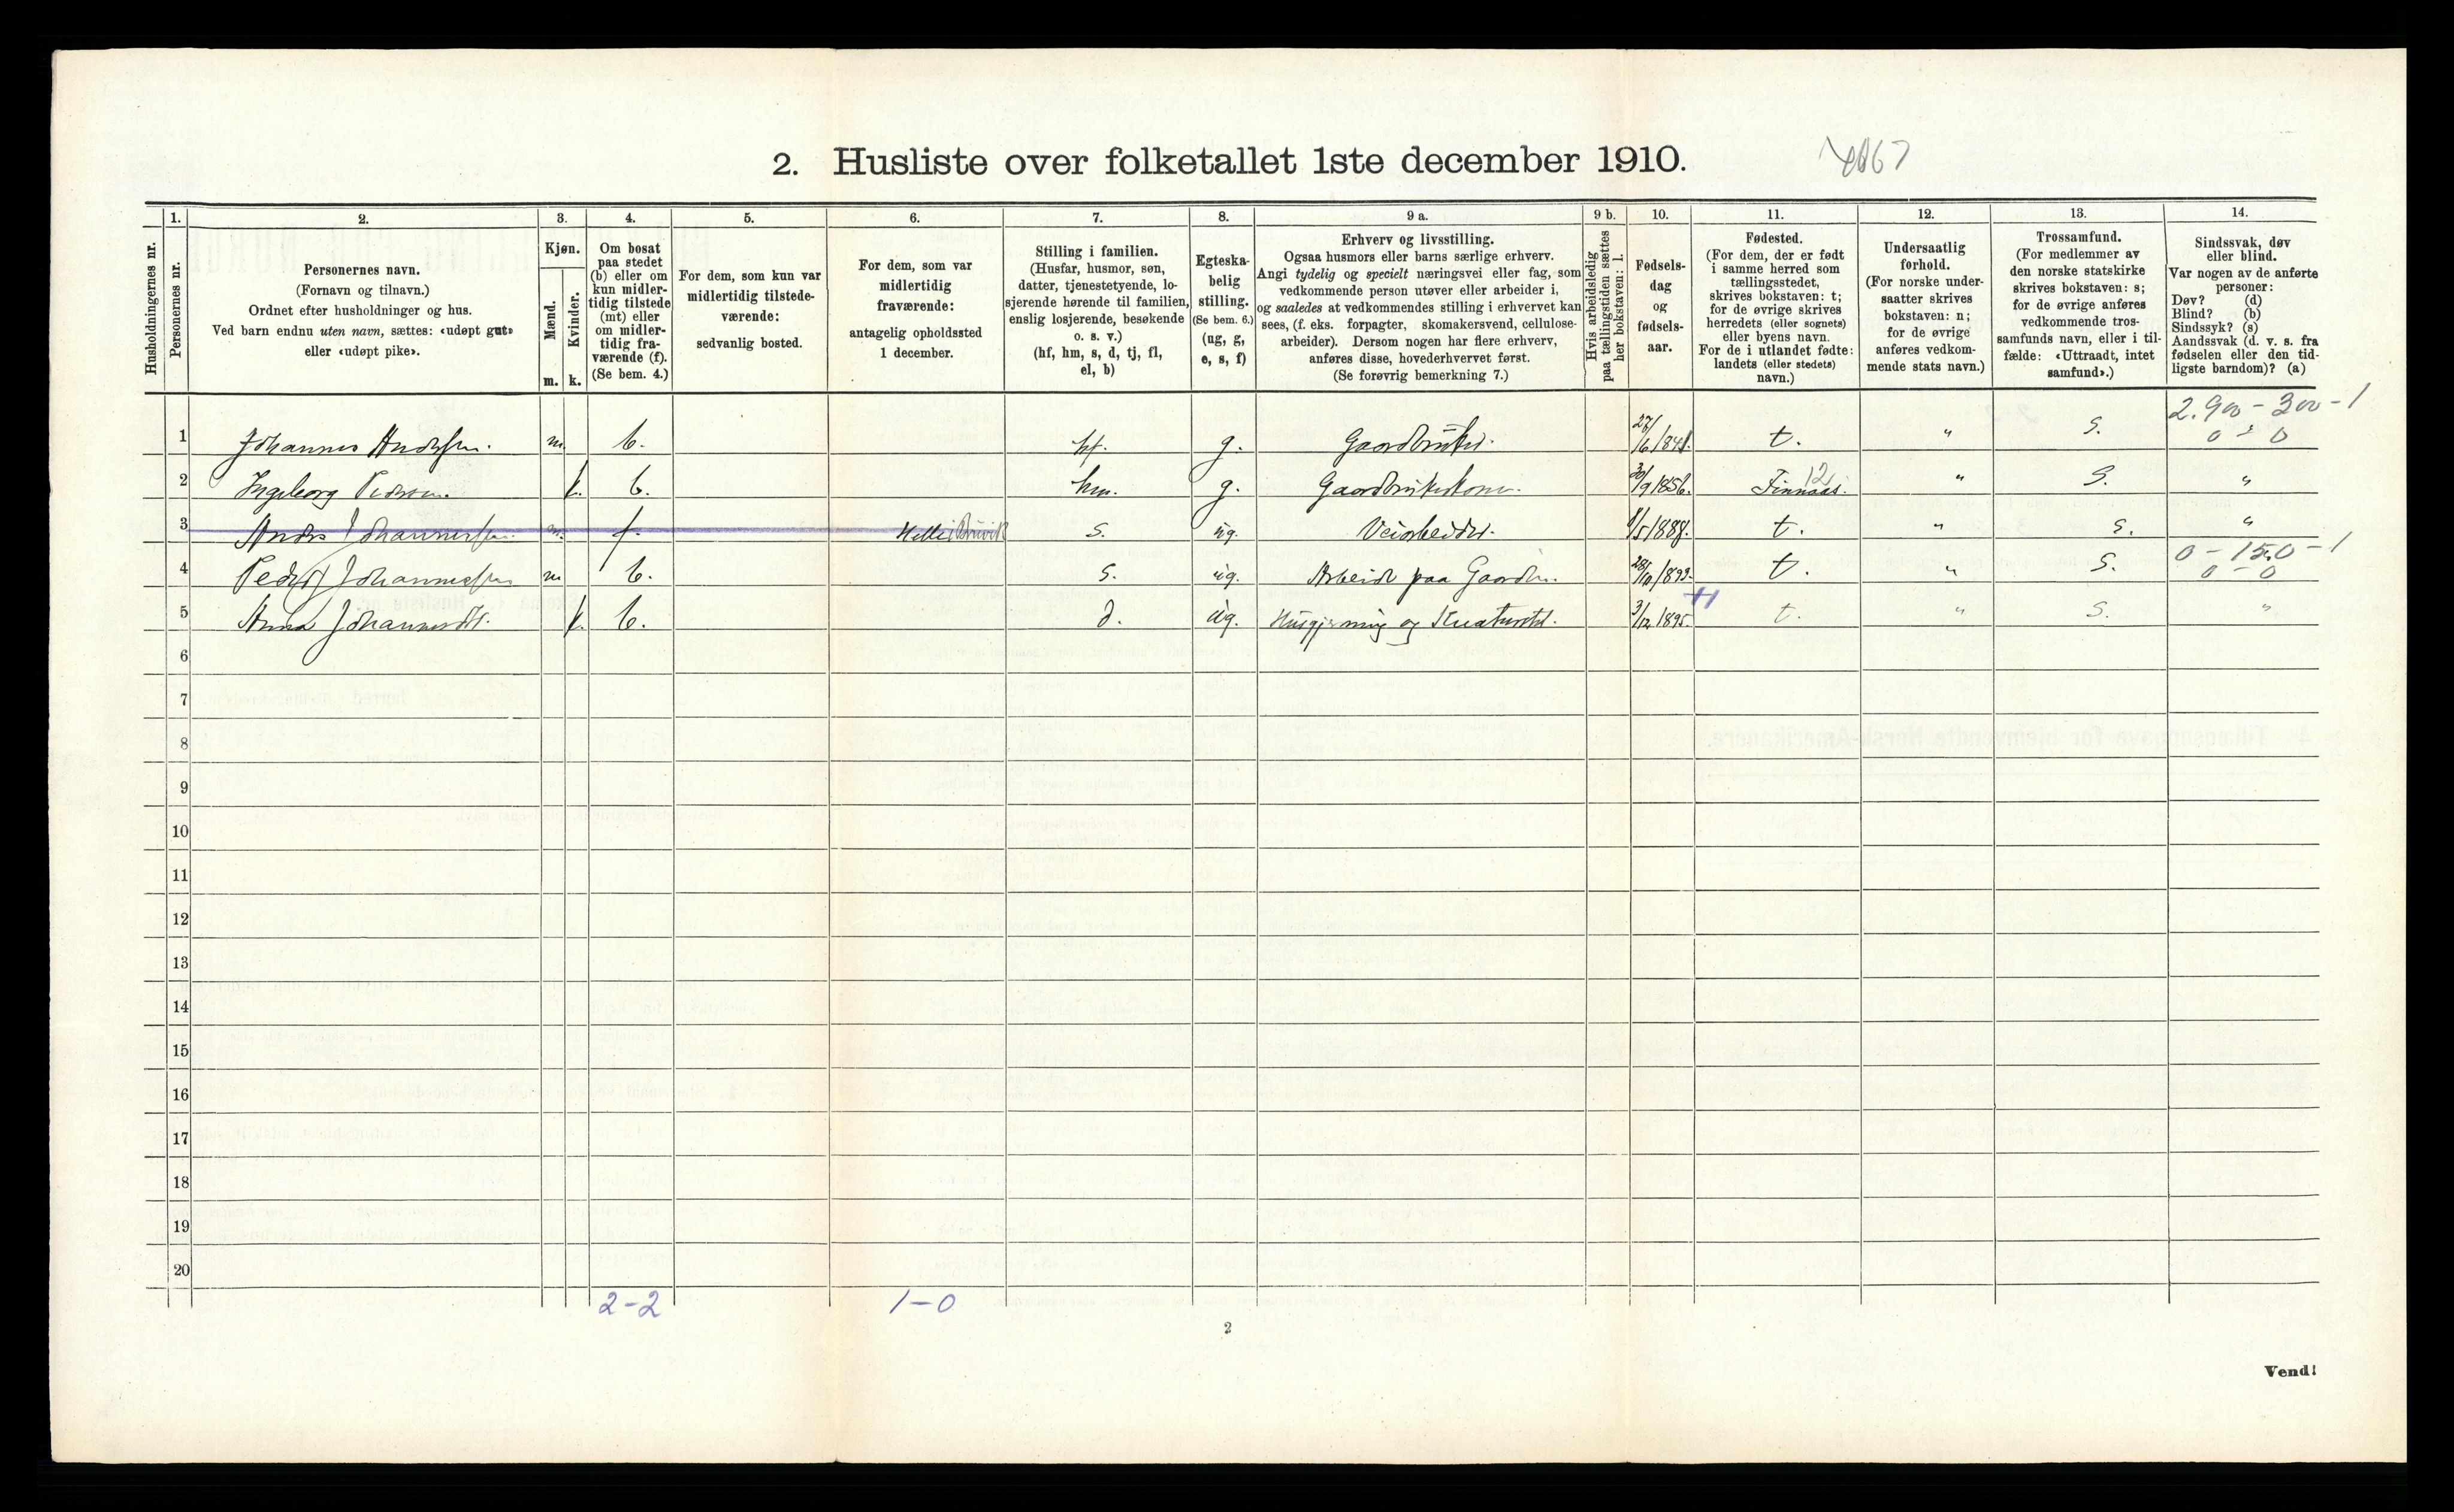 2. Husliste over folketallet 1ste december 1910.
1. 2. 3. 4. 5. 6. 7. 8. 9 a. 9 b. 10. 11. 12. 13. 14.
Husholdningernes nr.
Personernes nr.
Personernes navn.
(Fornavn og tilnavn.)
Ordnet efter husholdninger og hus.
Ved barn endnu uten navn, sættes: «udøpt gut»
eller «udøpt pike».
Kjøn.
Mænd.
Kvinder.
m. k.
Om bosat
paa stedet
(b) eller om
kun midler-
tidig tilstede
(mt) eller
om midler-
tidig fra-
værende (f).
(Se bem. 4.)
For dem, som kun var
midlertidig tilstede-
værende:
sedvanlig bosted.
For dem, som var
midlertidig
fraværende:
antagelig opholdssted
1 december.
Stilling i familien.
(Husfar, husmor, søn,
datter, tjenestetyende, lo-
sjerende hørende til familien,
enslig losjerende, besøkende
o. s. v.)
(hf, hm, s, d, tj, fl,
el, b)
Egteska-
belig
stilling.
(Se bem. 6.)
(ug, g,
e, s, f)
Erhverv og livsstilling.
Ogsaa husmors eller barns særlige erhverv.
Angi tydelig og specielt næringsvei eller fag, som
vedkommende person utøver eller arbeider i,
og saaledes at vedkommendes stilling i erhvervet kan
sees, (f. eks. forpagter, skomakersvend, cellulose-
arbeider). Dersom nogen har flere erhverv,
anføres disse, hovederhvervet først.
(Se forøvrig bemerkning 7.)
Hvis arbeidsledig
paa tællingstiden sættes
her bokstaven: l.
Fødsels-
dag
og
fødsels-
aar.
Fødested.
(For dem, der er født
i samme herred som
tællingsstedet,
skrives bokstaven: t;
for de øvrige skrives
herredets (eller sognets)
eller byens navn.
For de i utlandet fødte:
landets (eller stedets)
navn.)
Undersaatlig
forhold.
(For norske under-
saatter skrives
bokstaven: n;
for de øvrige
anføres vedkom-
mende stats navn.)
Trossamfund.
(For medlemmer av
den norske statskirke
skrives bokstaven: s;
for de øvrige anføres
vedkommende tros-
samfunds navn, eller i til-
fælde: «Uttraadt, intet
samfund».)
Sindssvak, døv
eller blind.
Var nogen av de anførte
personer:
Døv? (d)
Blind? (b)
Sindssyk? (s)
Aandssvak (d. v. s. fra
fødselen eller den tid-
ligste barndom)? (a)
2.900 - 300 - 1
1 Johannes Andersen. m. b. hf. g. Gaardbruker. t. " S. 0 - 0
2 Ingeborg Pedersen. k. b. hm. g. Gaardbrukerkone. 30/9 1856. Finnaas. 12 " S. "
3 Anders Johannessen. m. f. s. ug. Veiarbeider. t. " S. "
0 - 150 - 1
4 Peder J Johannessen m b. s. ug. Arbeide paa Gaarden. 28/10 1893. t. " S. 0 - 0
5 Anna Johannesdt. k. b. d. ug. Husgjerning og Kreaturstel. 3/12 1895. t. " S. "
6
7
8
9
10
11
12
13
14
15
16
17
18
19
20
2-2 1-0
2
Vend!